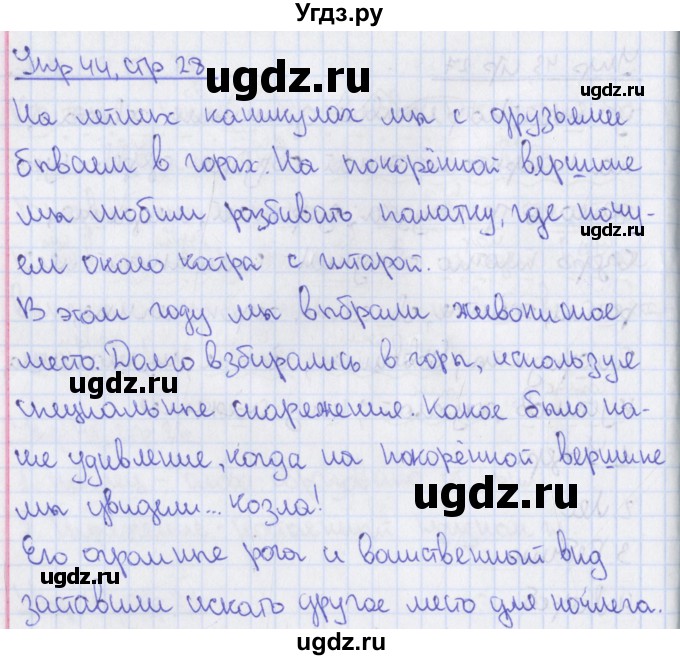 Угдз.ру
Упр 44, стр 28
На летних каникулах мы с друзьями
бываем в горах. На покорённой вершине
мы любим разбивать палатку, где ночу-
ем около костра с гитарой.
В этом году мы выбрали живописное
место. Долго взбирались в горы, используя
специальные снаряжения. Какое было на-
ше удивление, когда на покорённой вершине
мы увидели... козла!
Его огромные рога и воинственный вид
заставили искать другое место для ночлега.
ugdz.ru
ugdz.ru
ugdz.ru
ugdz.ru
ugdz.ru
ugdz.ru
ugdz.ru
ugdz.ru